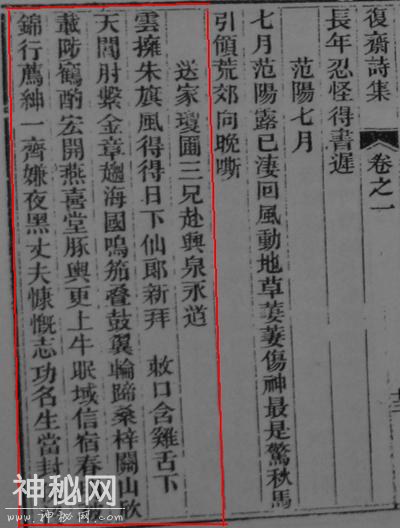 復齋詩集 卷之一
長年忍怪得書遲
范陽七月
七月范陽露已淒回風動地草萋萋傷神最是驚秋馬
引領荒郊向晚嘶
送家瓊圃三兄赴興泉永道
雲擁朱旗風得得日下仙郎新拜 敕口含雞舌下
天閶肘繫金章趨海國鳴笳疊鼓翼輪蹄桑梓關山歘
載陟鶴酌宏開燕喜堂豚輿更上牛眠域信宿春
錦行薦紳一齊嫌夜黑丈夫慷慨志功名生當封
神秘网
www.shenmw.com